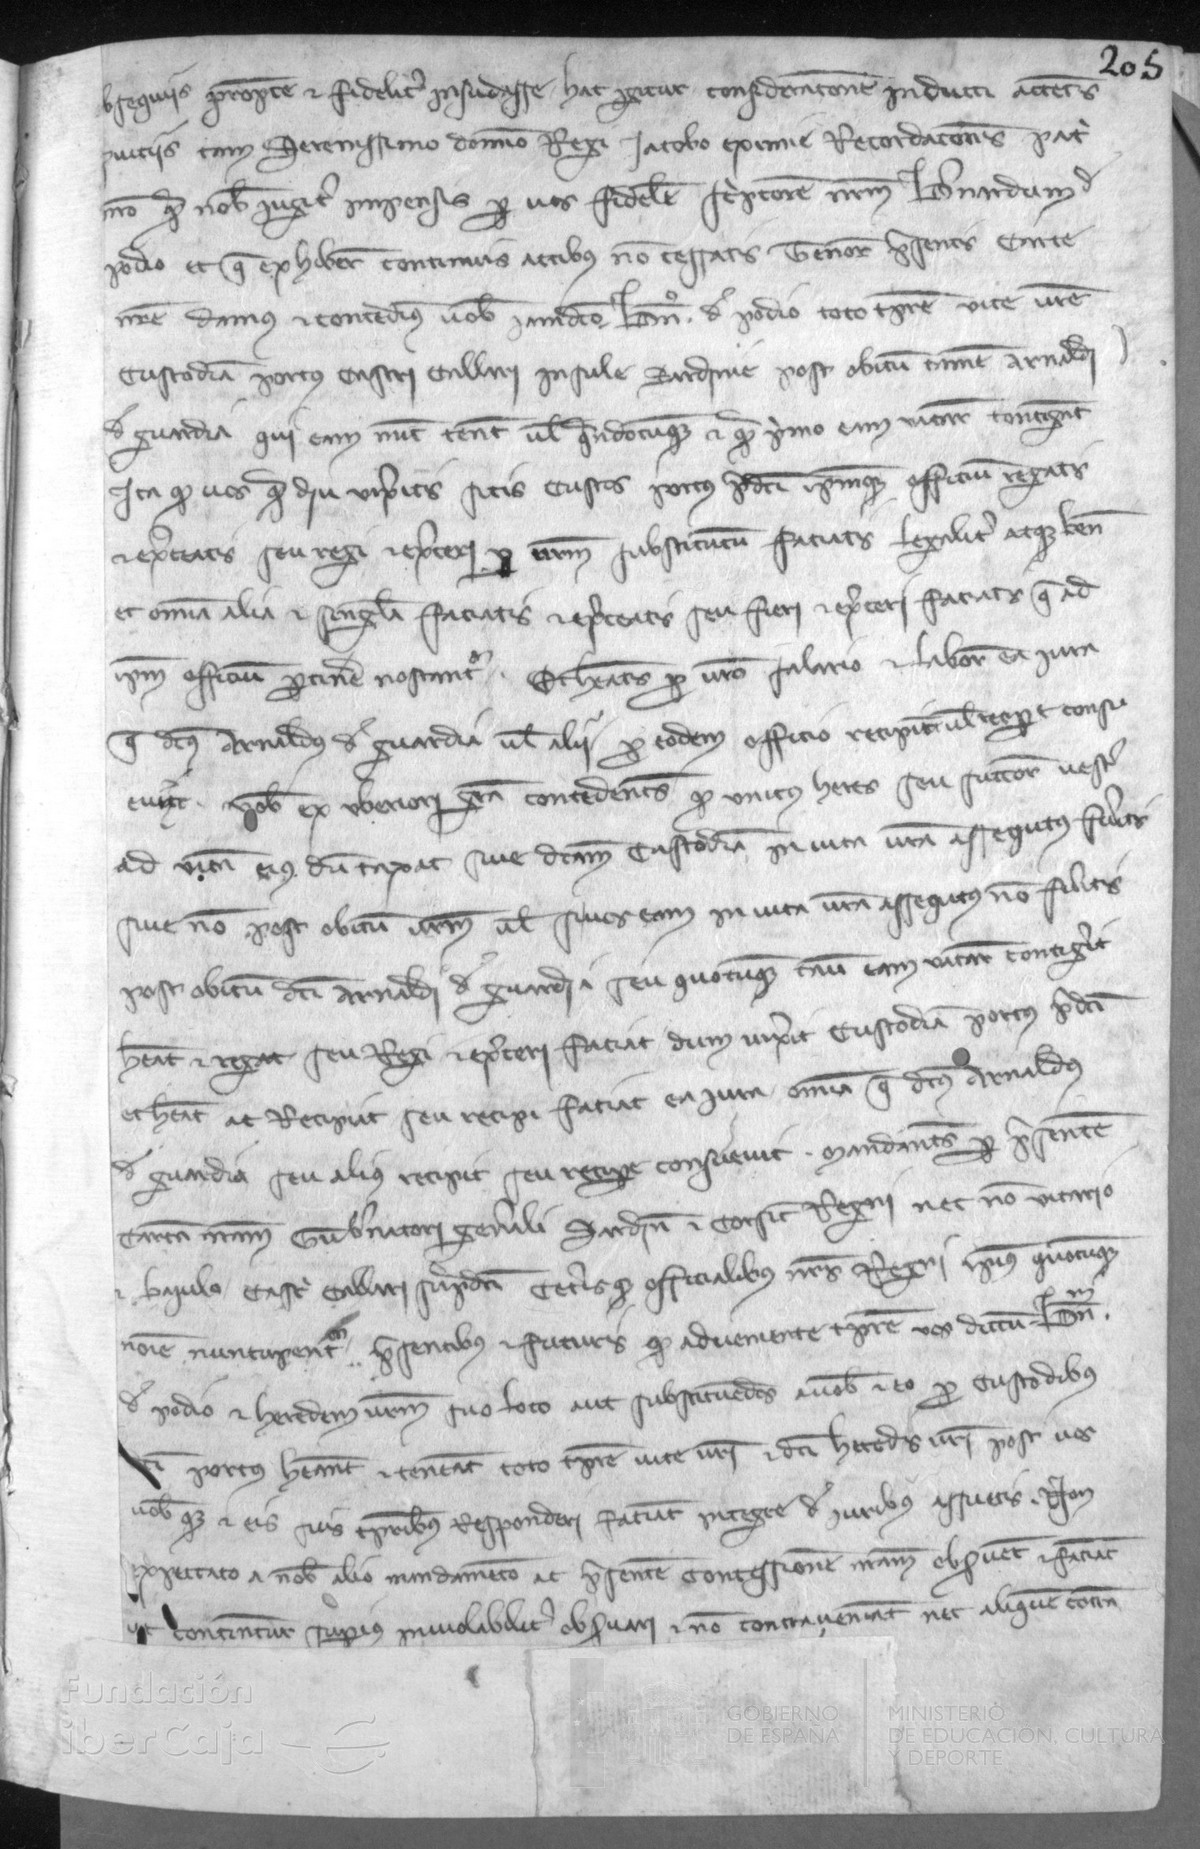 205
bsequiis prompte et fideliter insudasse hac igitur consideracione inducti attentis
viciis tam Serenissimo domino Regi Jacobo eximie Recordacionis patri
nostro quam nobis jugiter impensis per vos fidelem scriptorem nostrum Bernardum de
podio et que exhibere continuis actibus non cessatis Tenore presentis Carte
nostre damus et concedimus vobis jamdicto Bernardo de podio toto tempore vite vestre
Custodiam portus Castri Callari insule Sardinie post obitum tamen Arnaldi
de guardia qui eam nunc tenet vel quandocumque et quam primo eam vacare contingat
Ita quod vos quam diu vixeritis sitis Custos portus predicti ipsumque officium regatis
et exerceatis seu regi et exerceri per vestrum substitutum faciatis legaliter atque bene
et omnia alia et singula faciatis et exerceatis seu fieri et exerceri faciatis que ad
ipsum officium pertinere noscantur. Et habeatis pro vestro salario et labore ea jura
que dictus Arnaldus de guardia vel alii pro eodem officio recipiunt vel recipere consu
everunt. vobis ex uberiori gratia concedentes quod unicus heres seu successor vester
ad vitam eius dumtaxat sive dictam Custodiam in vita vestra assequtus fueritis
sive non post obitum vestrum vel si vos eam in vita vestra assequtus non fueritis
post obitum dicti Arnaldi de guardia seu quocumque casu eam vacare contigerit
habeat et regat seu Regi et exerceri faciat dum vixerit Custodiam portus predicti
et habeat ac Recipiat seu recipi faciat ea jura omnia que dictus Arnaldus
de guardia seu alius recipit seu recipere consuevit. mandantes per presentem
Cartam nostram Gubernatori generali Sardinie et Corsice Regni nec non vicario
et bajulo Castri Callari supradicti Ceterisque officialibus nostris Regni ipsius quocumque
nomine nuncupentur presentibus et futuris quod adveniente tempore vos dictum Bernardum
de podio et heredem vestrum suo loco aut substituendos a vobis et eo pro Custodibus
dicti portus habeant et teneant toto tempore vite vestri et dicti heredis vestri post vos
vobisque et eis suis temporibus Responderi faciant integre de juribus assuetis. Non
expectato a nobis alio mandamento ac presentem Concessionem nostram observent et faciant
ut continetur superius inviolabiliter observari et non contraveniant nec aliquem contra
Fundación
iberCaja
GOBIERNO
DE ESPAÑA
MINISTERIO
DE EDUCACIÓN, CULTURA
Y DEPORTE